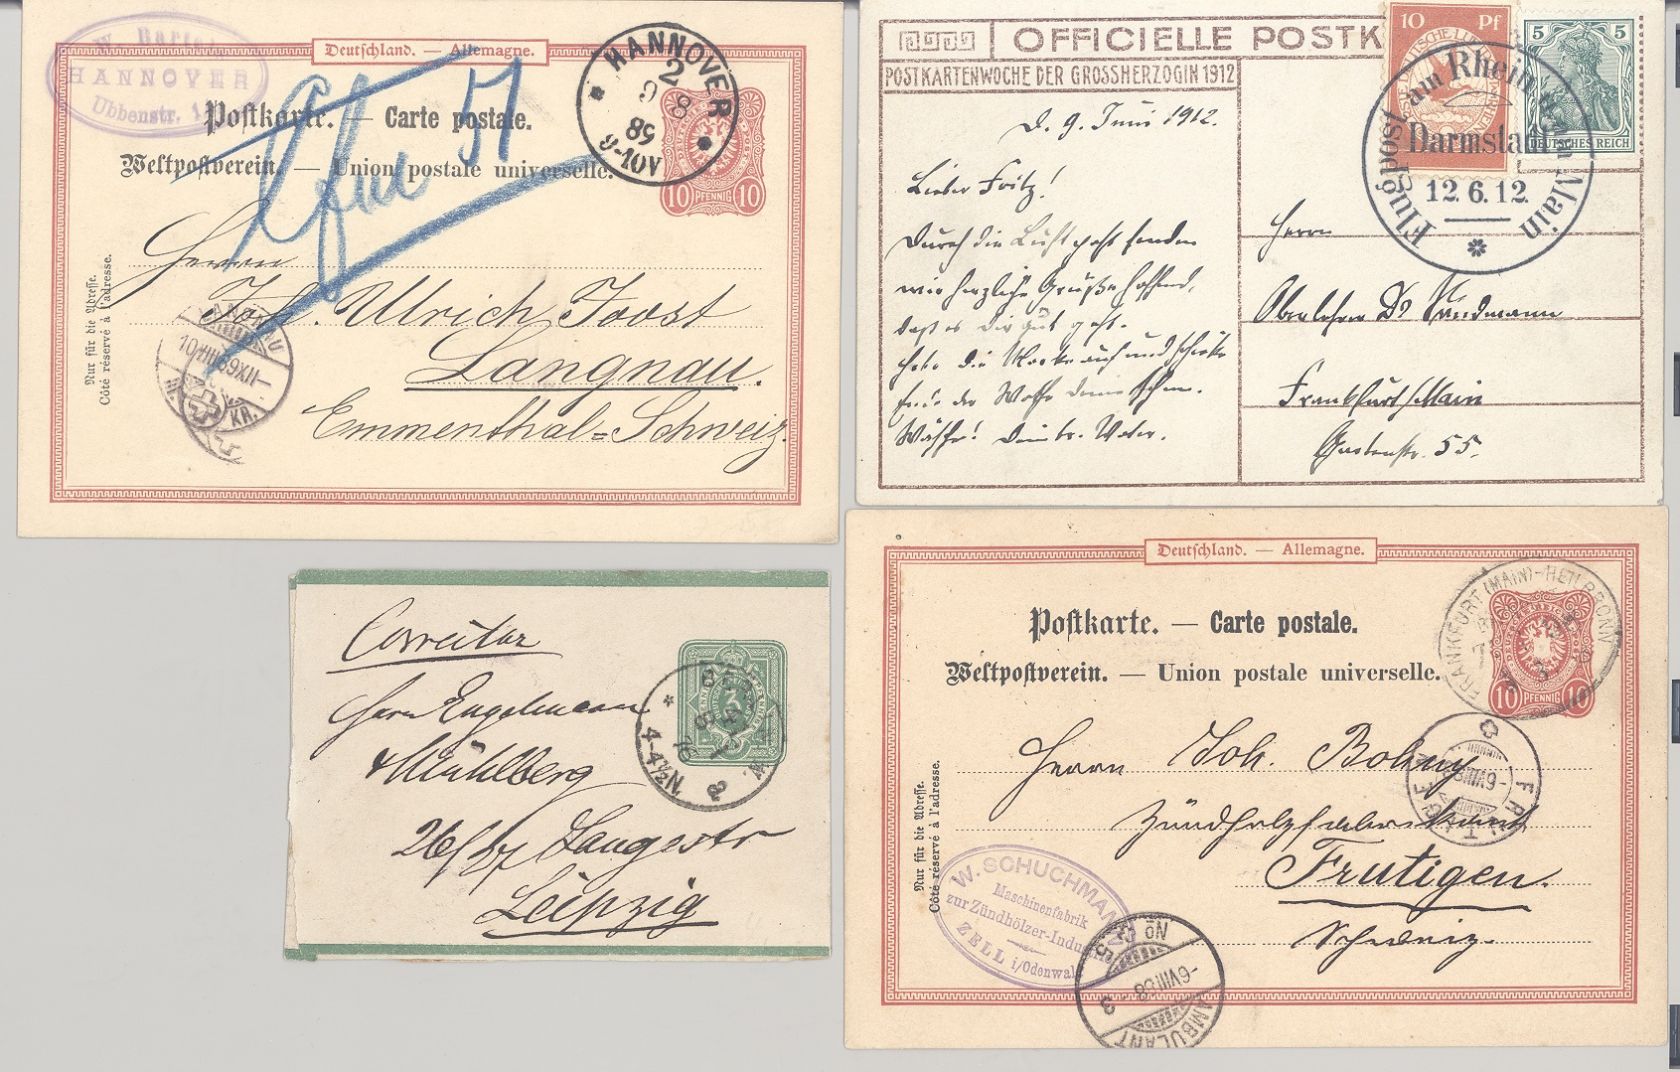 W. Bartels
HANNOVER
Ubbenstr.
Deutschland. — Allemagne.
Postkarte. — Carte postale.
Weltpostverein. — Union postale universelle.
HANNOVER
89
9-10V
10 PFENNIG 10
Nur für die Adresse.
Côté réservé à l'adresse.
Herrn
Joh. Ulrich Joost
Langnau.
Emmenthal=Schweiz.
10 VIII 89 XII
OFFICIELLE POSTK
POSTKARTENWOCHE DER GROSSHERZOGIN 1912
10 Pf
5 5
DEUTSCHES REICH
Flugpost am Rhein u. am Main
Darmstadt
12.6.12.
D. 9. Juni 1912.
Lieber Fritz!
Durch die Luft gehst senden
wir herzliche Grüße hoffend,
daß es Dir gut geht.
Hebe die Marke auch und schicke
Ende der Woche Deine schm.
Wäsche! Dein tr. Vater.
Herrn
Oberlehrer Dr Sandmann
Frankfurt/Main
55.
Correctur
Herrn Engelmann
& Mühlberg
26/27 Langestr
Leipzig
3
BERLIN W.
4-4½N
Deutschland. — Allemagne.
Postkarte. — Carte postale.
Weltpostverein. — Union postale universelle.
FRANKFURT (MAIN)-HEILBRONN
10 PFENNIG 10
Nur für die Adresse.
Côté réservé à l'adresse.
Herrn Joh. Bohny
Zündholzfabrikant
Frutigen.
Schweiz.
FRUTIGEN
W. SCHUCHMANN
Maschinenfabrik
zur Zündhölzer-Industrie
ZELL i/Odenwald
AMBULANT
-6 VIII 88
3
No